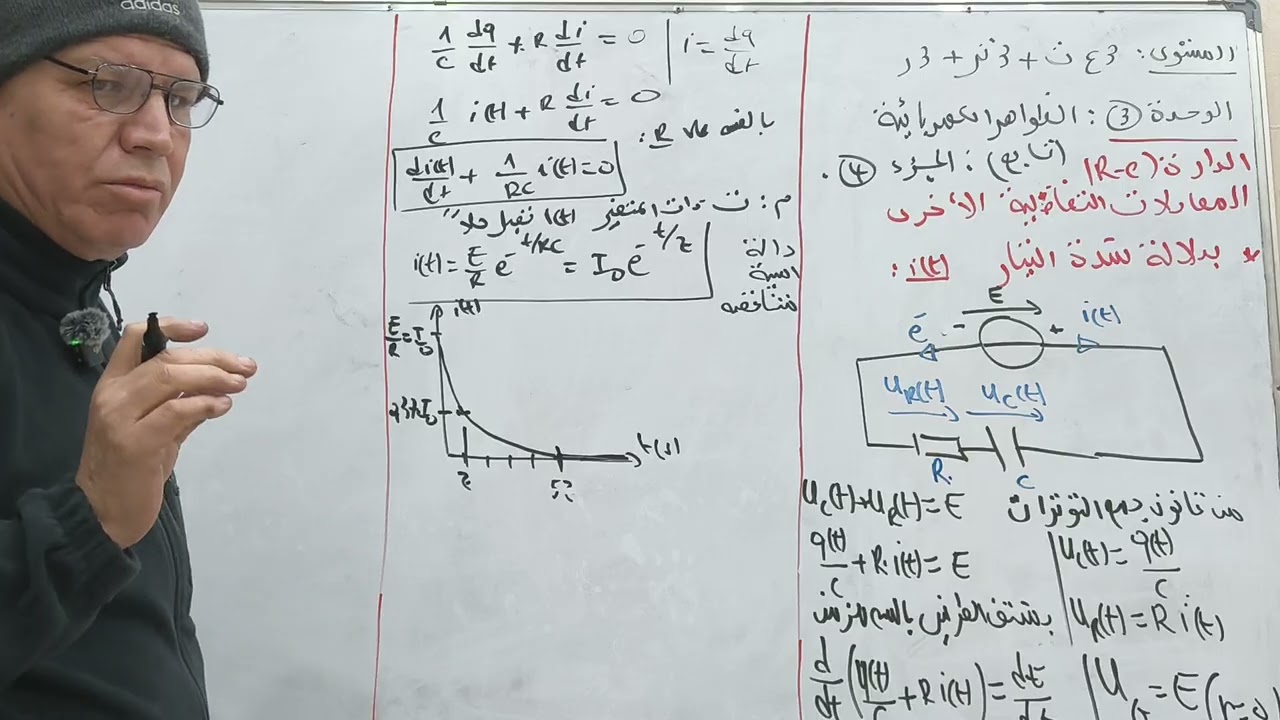 المستوى: 3ع ت + 3 تر + 3ر
الوحدة ③: الظواهر الكهربائية
الدارة (R-C) (تابع): الجزء ④.
المعادلات التفاضلية الأخرى
* بدلالة شدة التيار i(t):
E
e⁻ - + i(t)
u_R(t) u_C(t)
R. C
من قانون جمع التوترات u_C(t)+u_R(t)=E
q(t)/C + R.i(t) = E | u_C(t) = q(t)/C
بشتق الطرفين بالنسبة للزمن | u_R(t) = R i(t)
d/dt (q(t)/C + R i(t)) = dE/dt
1/C dq/dt + R di/dt = 0 | i = dq/dt
1/C i(t) + R di/dt = 0
بالقسمة على R:
di(t)/dt + 1/RC i(t) = 0
م: ت ذات المتغير i(t) تقبل حلا"
i(t) = E/R e^-t/RC = I₀ e^-t/τ
دالة
أسية
متناقصة
i(t)
E/R = I₀
37% I₀
t(s)
τ 5τ
adidas